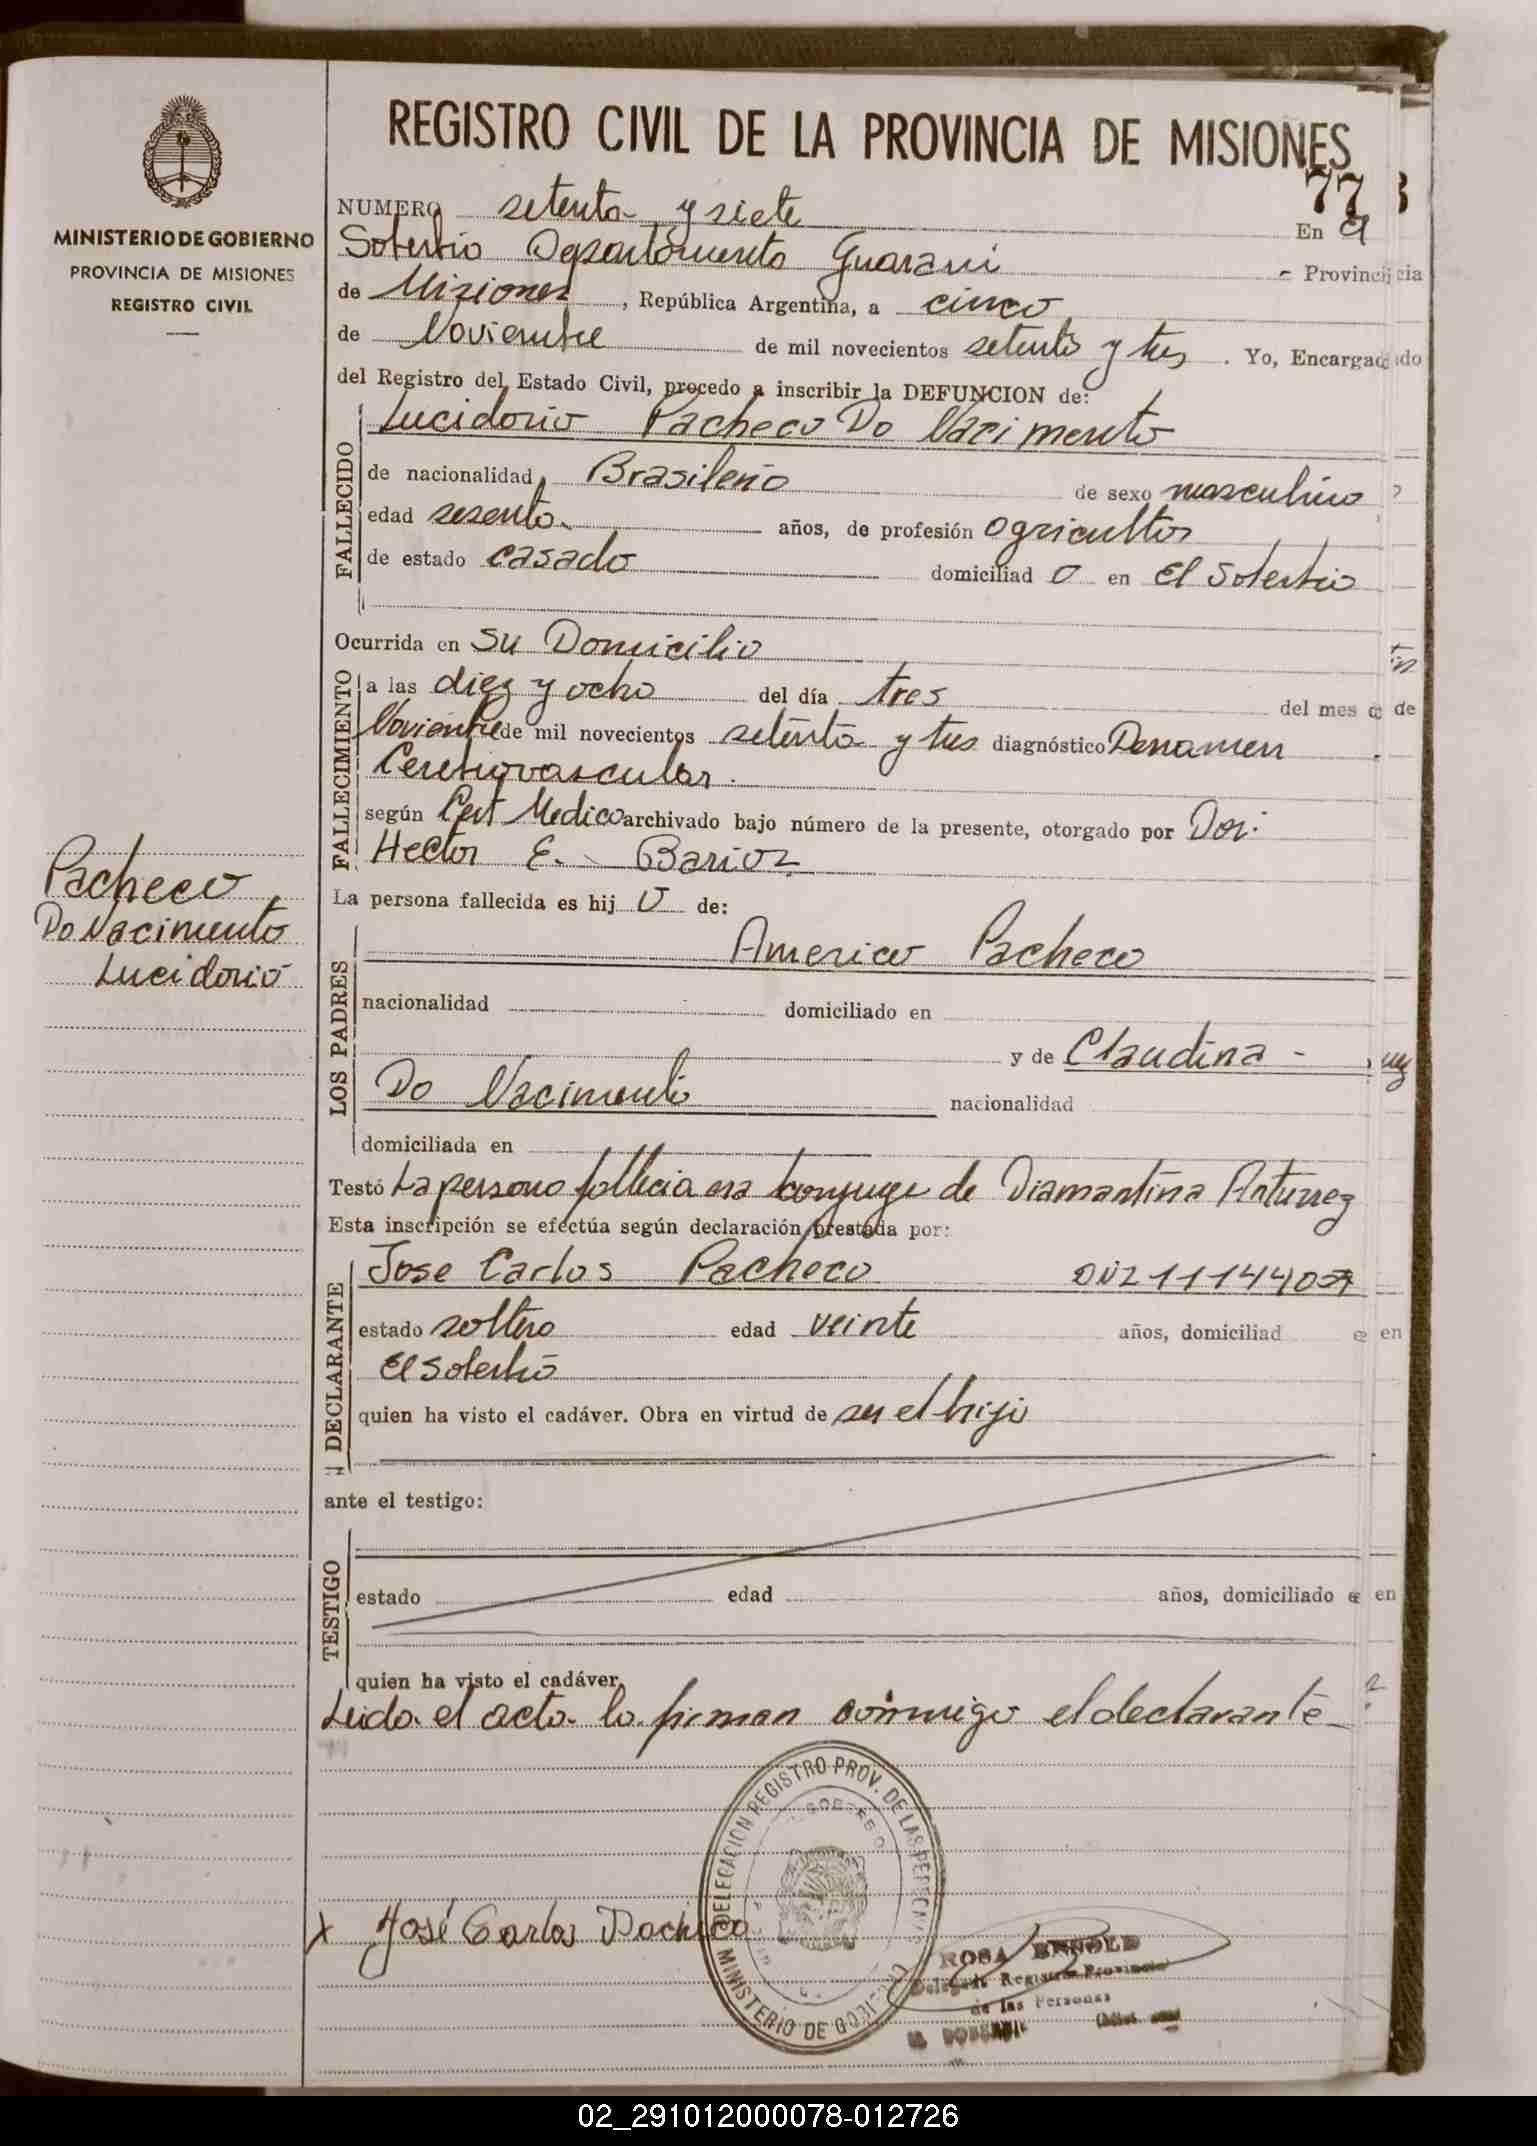 REGISTRO CIVIL DE LA PROVINCIA DE MISIONES
77
MINISTERIO DE GOBIERNO
PROVINCIA DE MISIONES
REGISTRO CIVIL
NUMERO setenta y siete En el
Soberbio Departamento Guarani - Provincia
de Misiones, República Argentina, a cinco
de Noviembre de mil novecientos setenta y tres. Yo, Encargado
del Registro del Estado Civil, procedo a inscribir la DEFUNCION de:
FALLECIDO
Lucidorio Pacheco Do Nacimento
de nacionalidad Brasileño de sexo masculino
edad sesenta años, de profesión agricultor
de estado casado domiciliad o en El Soberbio
Ocurrida en su Domicilio
FALLECIMIENTO
a las diez y ocho del día tres del mes de
Noviembre de mil novecientos setenta y tres diagnóstico Derramen
Cerebrovascular.
según Cert Medico archivado bajo número de la presente, otorgado por Dor:
Hector E. Barios
Pacheco
Do Nacimento
Lucidorio
La persona fallecida es hij o de:
LOS PADRES
Americo Pacheco
nacionalidad domiciliado en
y de Claudina -
Do Nacimento nacionalidad
domiciliada en
Testó La persona era conyuge de Diamantina Anturrez
Esta inscripción se efectúa según declaración prestada por:
DECLARANTE
Jose Carlos Pacheco
estado soltero edad veinte años, domiciliad en
El Soberbio
quien ha visto el cadáver. Obra en virtud de ser el hijo
ante el testigo:
TESTIGO
estado edad años, domiciliado en
quien ha visto el cadáver.
Leida el acta la firman conmigo el declarante
DELEGACION REGISTRO PROV. DE LAS PERSONAS
MINISTERIO DE GOBIERNO
x José Carlos Pacheco
ROSA
Delegada Registro Provincial
de las Personas
02_291012000078-012726